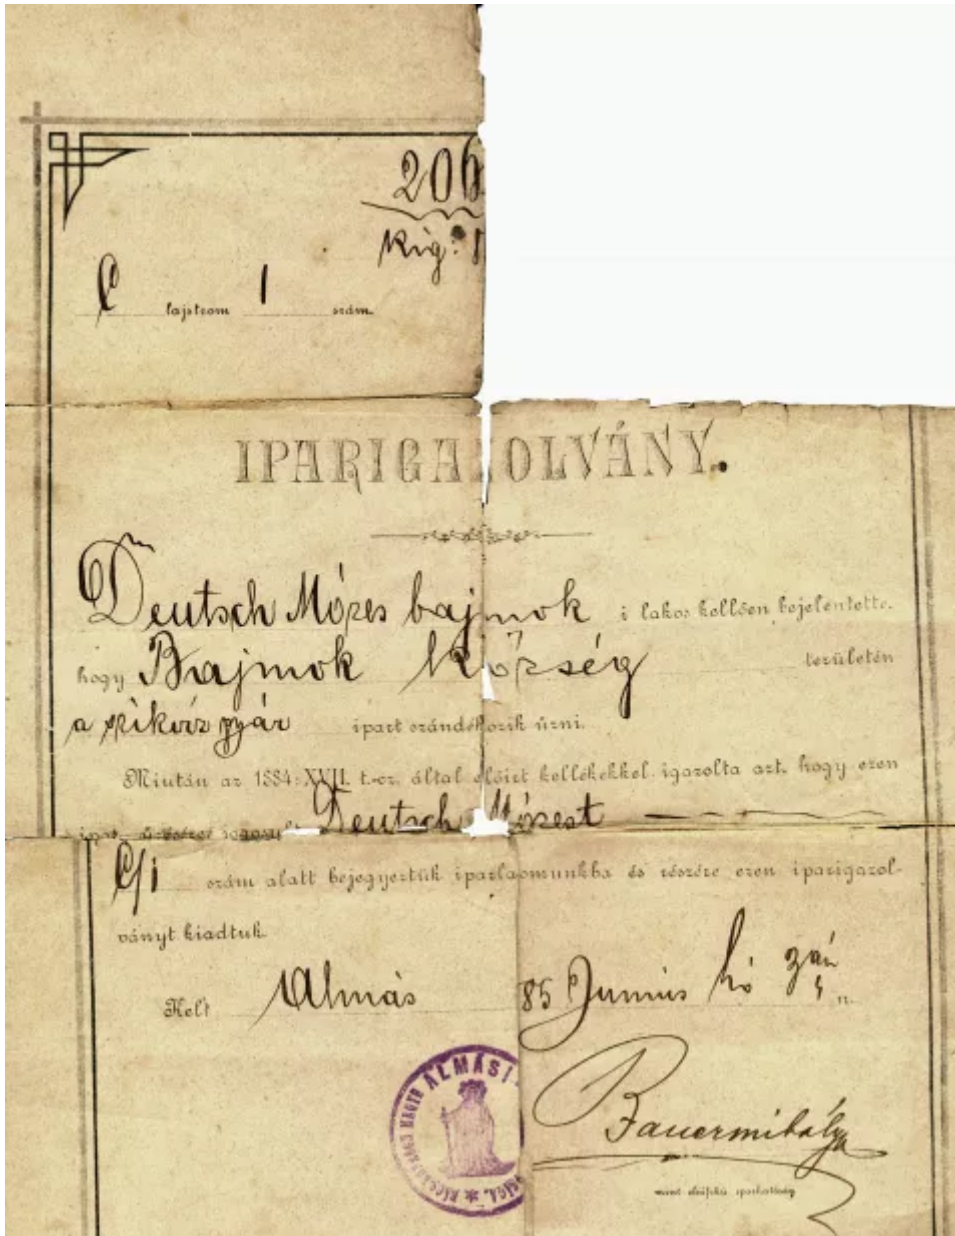 206
kig:
C lajstrom 1 szám.
IPARIGAZOLVÁNY.
Deutsch Mózes bajmok i lakos kellően bejelentette,
hogy Bajmok község területén
a szikvíz gyár ipart szándékozik űzni.
Miután az 1884: XVII. t.-cz. által előirt kellékekkel igazolta azt, hogy ezen
Deutsch Mózest
C/1 szám alatt bejegyeztük iparlajstromunkba és részére ezen iparigazol-
ványt kiadtuk.
Kelt Almás 85 Junius hó n.
ÁLMÁSI
BÁCS
Bauermihály
mint elsőfokú iparhatóság